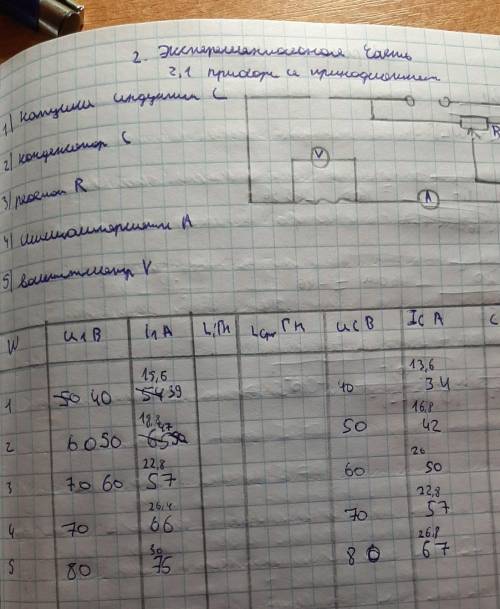 2. Экспериментальная часть
2,1 приборы и принадлежности
1) катушки индукции L
2) конденсатор C
3) реостат R
4) миллиамперметр A
5) вольтметр V
V
R
A
W U1 В I1 А L, Гн Lср Гн UC В IC А C
15,6 13,6
1 50 40 54 39 40 34
18,8 16,8
2 60 50 47 50 42
22,8 20
3 70 60 57 60 50
26,4 22,8
4 70 66 70 57
30 26,8
5 80 75 80 67